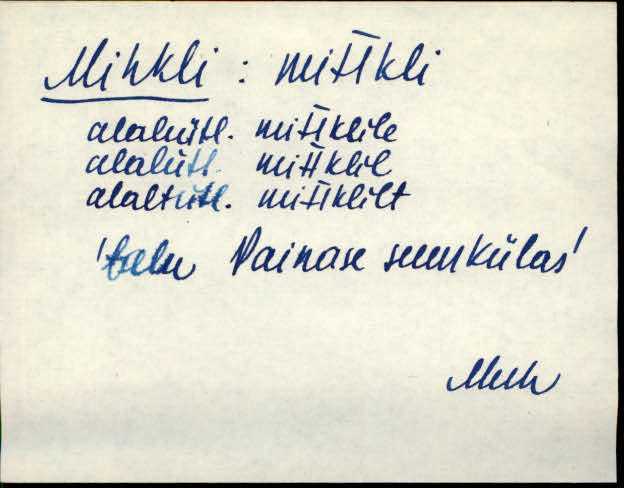 Mihkli : miĦkli
alaleütl. miĦklile
alalütl. miĦklil
alaltütl. miĦklilt
'talu Vainase suurkülas'
Muh